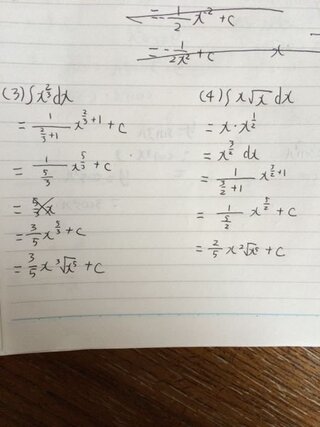 = -1/2 x^-2 + c
= - 1/2x² + c
x
(3) ∫ x^(2/3) dx
= 1/(2/3+1) x^(2/3+1) + c
= 1/(5/3) x^(5/3) + c
= 5/3 x
= 3/5 x^(5/3) + c
= 3/5 x ³√x⁵ + c
(4) ∫ x√x dx
= x·x^(1/2)
= x^(3/2) dx
= 1/(3/2+1) x^(3/2+1)
= 1/(5/2) x^(5/2) + c
= 2/5 x ²√x⁵ + c